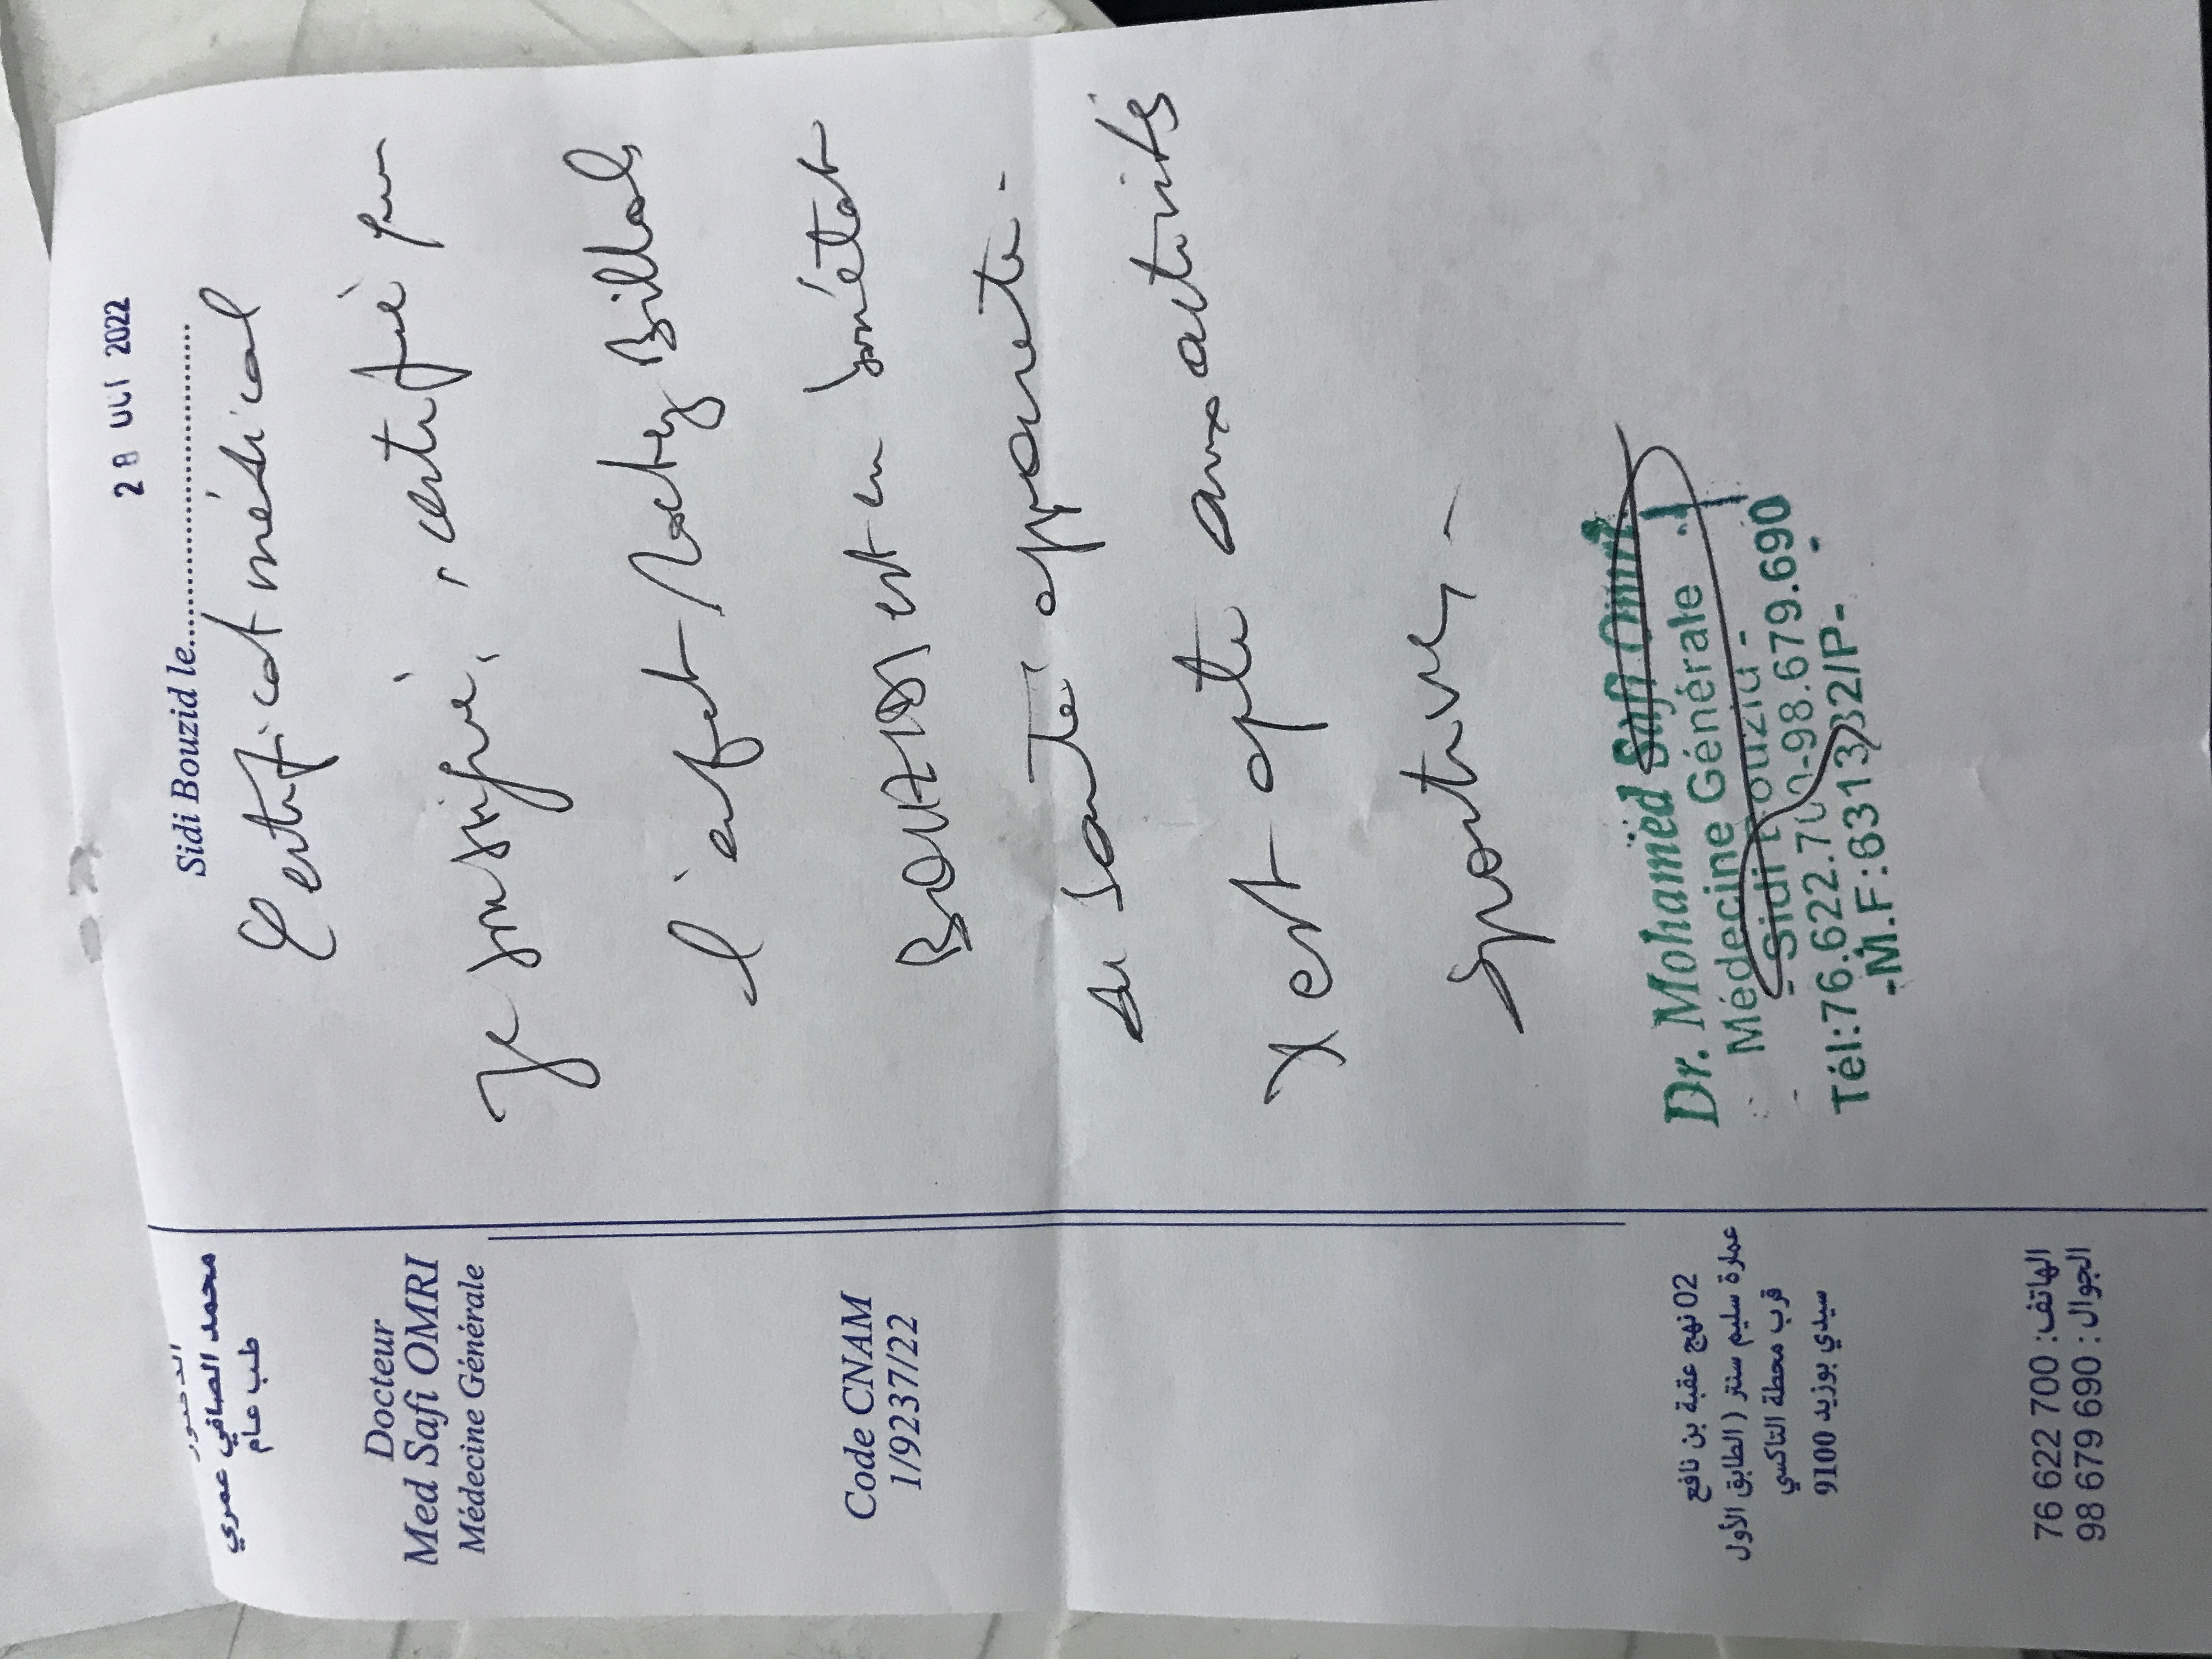 محمد الصافي عمري
طب عام
Docteur
Med Safi OMRI
Médecine Générale
Code CNAM
1/9237/22
02 نهج عقبة بن نافع
عمارة سليم سنتر ( الطابق الأول
قرب محطة التاكسي
سيدي بوزيد 9100
الهاتف: 700 622 76
الجوال: 690 679 98
28 OCT 2022
Sidi Bouzid le
Certificat médical
Je soussigné, certifie
l'enfant
BOUAZIZI est en bon état
de santé apparente.
Il est apte aux activités
sportives
Dr. Mohamed Safi Omri
Médecine Générale
- Sidi Bouzid -
Tél:76.622.700-98.679.690